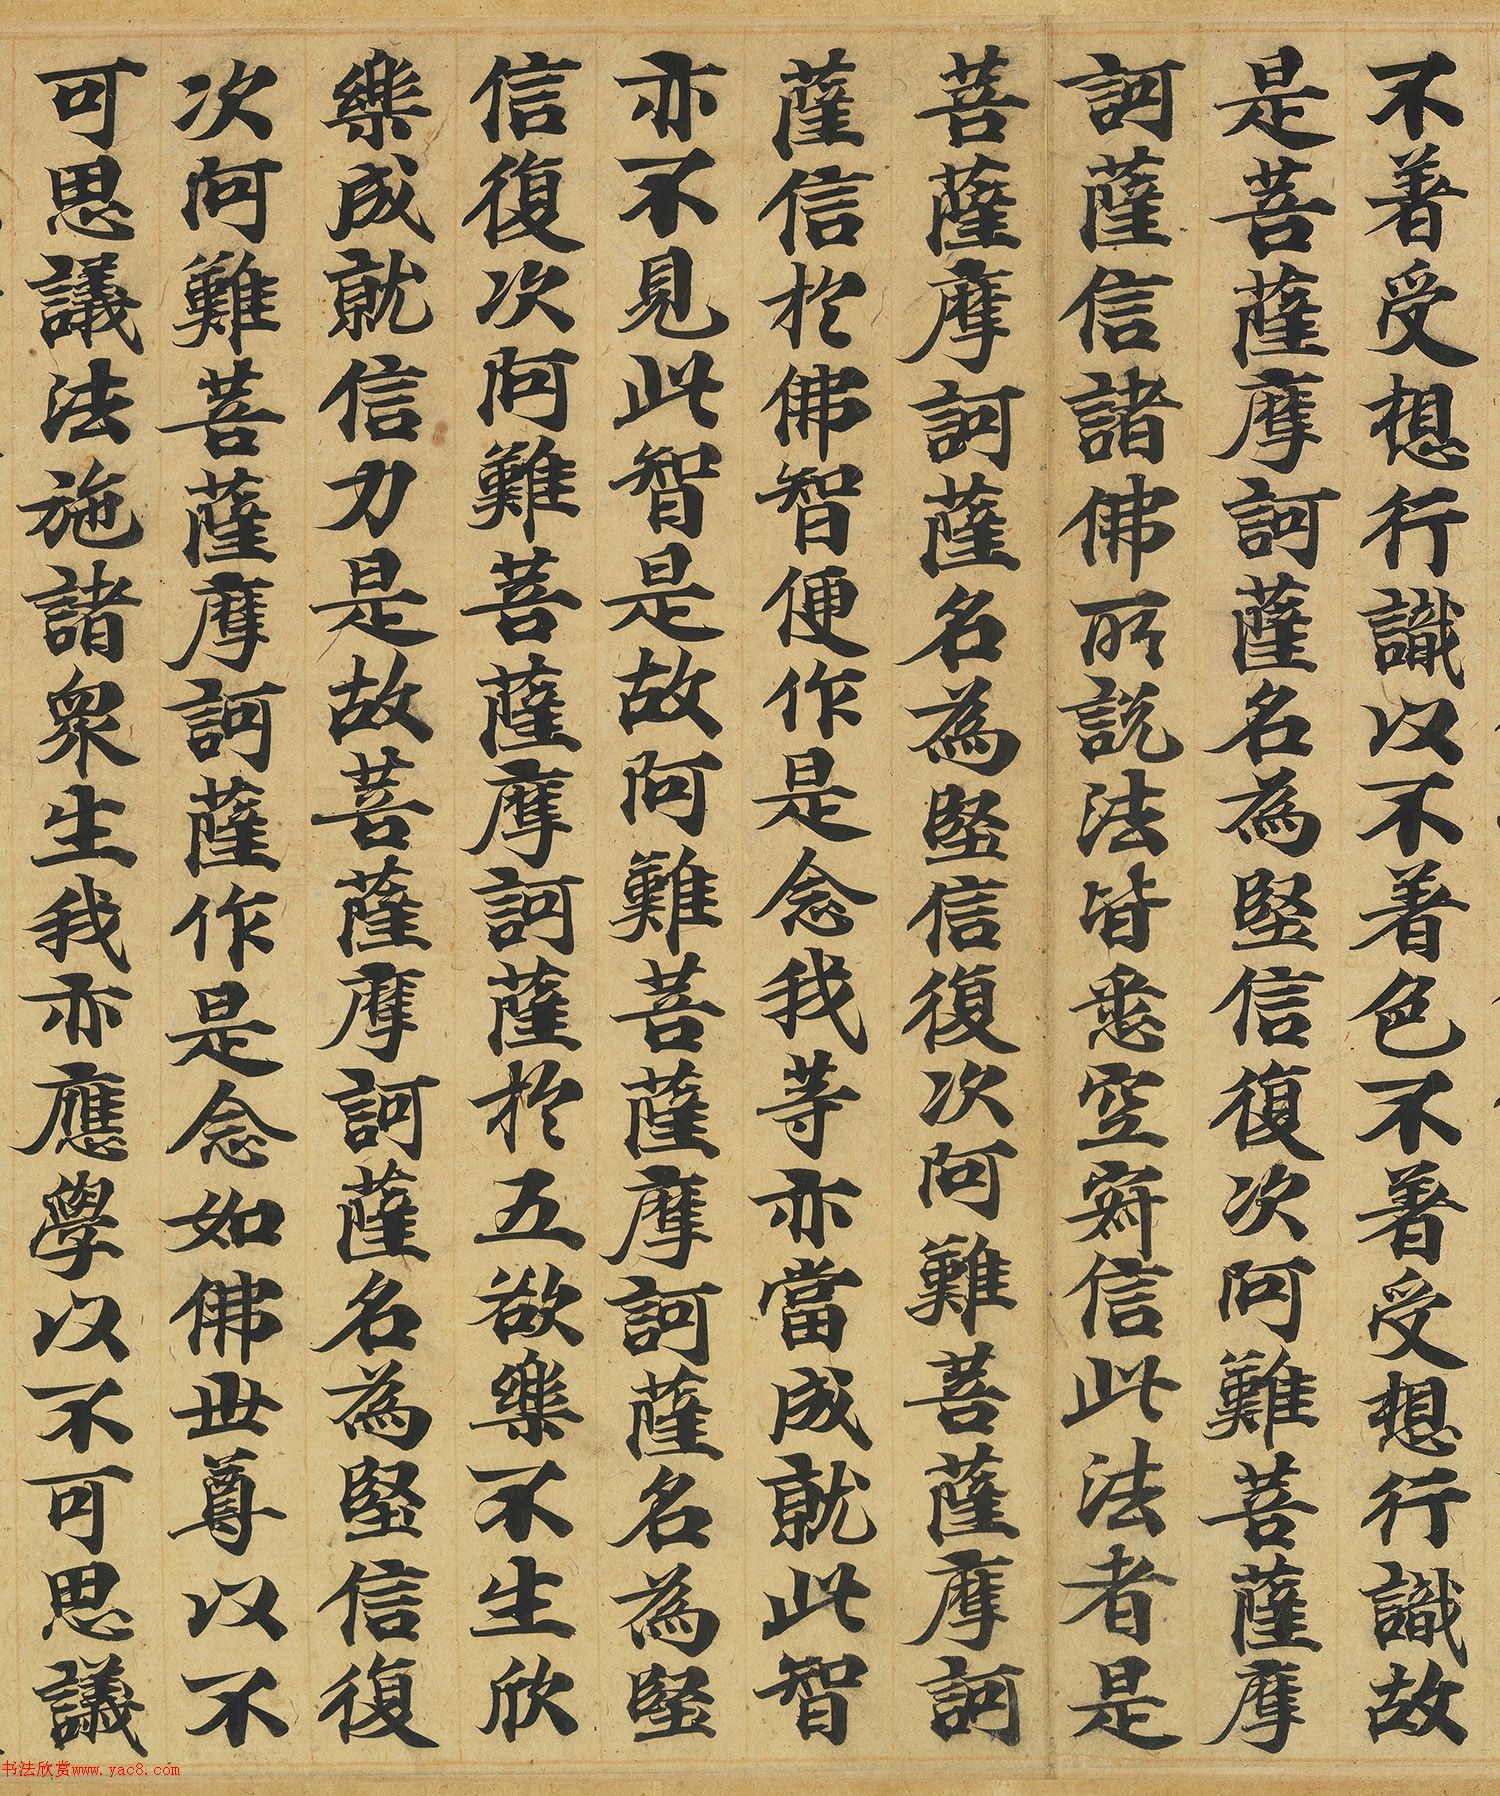 不著受想行識以不著色不著受想行識故
是菩薩摩訶薩名為堅信復次阿難菩薩摩
訶薩信諸佛所說法皆悉空寂信此法者是
菩薩摩訶薩名為堅信復次阿難菩薩摩訶
薩信於佛智便作是念我等亦當成就此智
亦不見此智是故阿難菩薩摩訶薩名為堅
信復次阿難菩薩摩訶薩於五欲樂不生欣
樂成就信力是故菩薩摩訶薩名為堅信復
次阿難菩薩摩訶薩作是念如佛世尊以不
可思議法施諸眾生我亦應學以不可思議
书法欣赏www.yac8.com